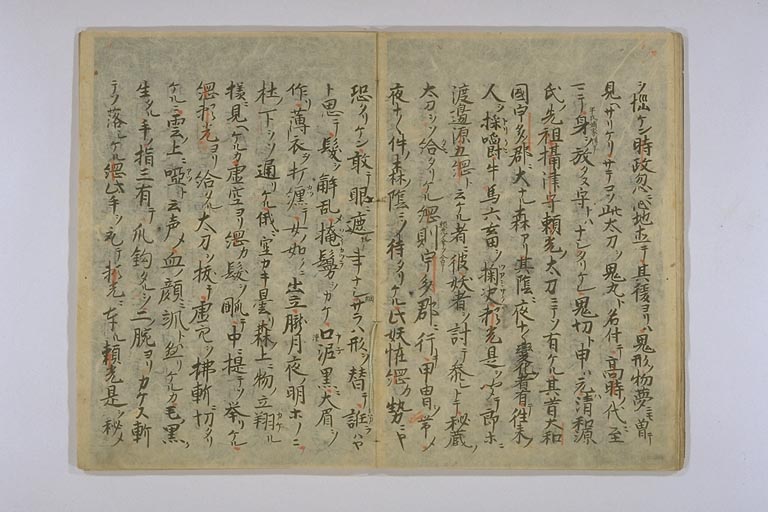 ケン時政忽心地ホニテ其後ヨリハ鬼形ノ物夢ニモ曽テ
見ヘサリケリサテコソ此太刀ヲ鬼丸ト名付テ高時ノ代ニ至
ニテ身ヲ放タス守トハナシタリケレ鬼切ト申ハ元清和源
氏ノ先祖攝津守頼光ノ太刀ニテソ有ケル其昔大和
國宇多郡ニ大ナル森アリ其陰ニ夜ナ〱變化者有テ往来ノ
人ヲ採嚼牛馬六畜ヲ掴 頼光是ヲ聞テ郎ホニ
渡邊源五綱ト云ケル者ニ彼妖者ヲ討テ参レトテ秘蔵ノ
太刀ヲソ給タリケル綱則宇多郡ニ行甲冑ヲ帯シ
夜ナ〱件ノ森ノ陰ニソ待タリケル此妖恠綱カ勢ニヤ
恐タリケン敢テ眼ニ遮ル事ナシサラハ形ヲ替テ誑ハヤ
ト思テ髪ヲ解乱シ掩鬘ヲカケ口涅黒ニ大眉ヲ
作リ薄衣ヲ打纏テ女ノ如ニ出立テ朧月夜ノ明ホノニ
杜ノ下ヲソ通リケル俄ニ空カキ曇森上ニ物立翔ル
様ニ見ヘケルカ虚空ヨリ綱カ髪ヲ テ中ニ提テソ挙リケル
綱頼光ヨリ給タル太刀ヲ抜テ虚空ヲ拂斬ニ切タリ
ケル雲ノ上ニ唖ト云声ノ血ノ顔ニ トカヽリケルカ毛黒ク
生タル手ノ指三有テ爪鈎タルヲ二腕ヨリカケス斬
テソ落シケル綱此手ヲ テ頼光ニ奉ル頼光是ヲ秘メ